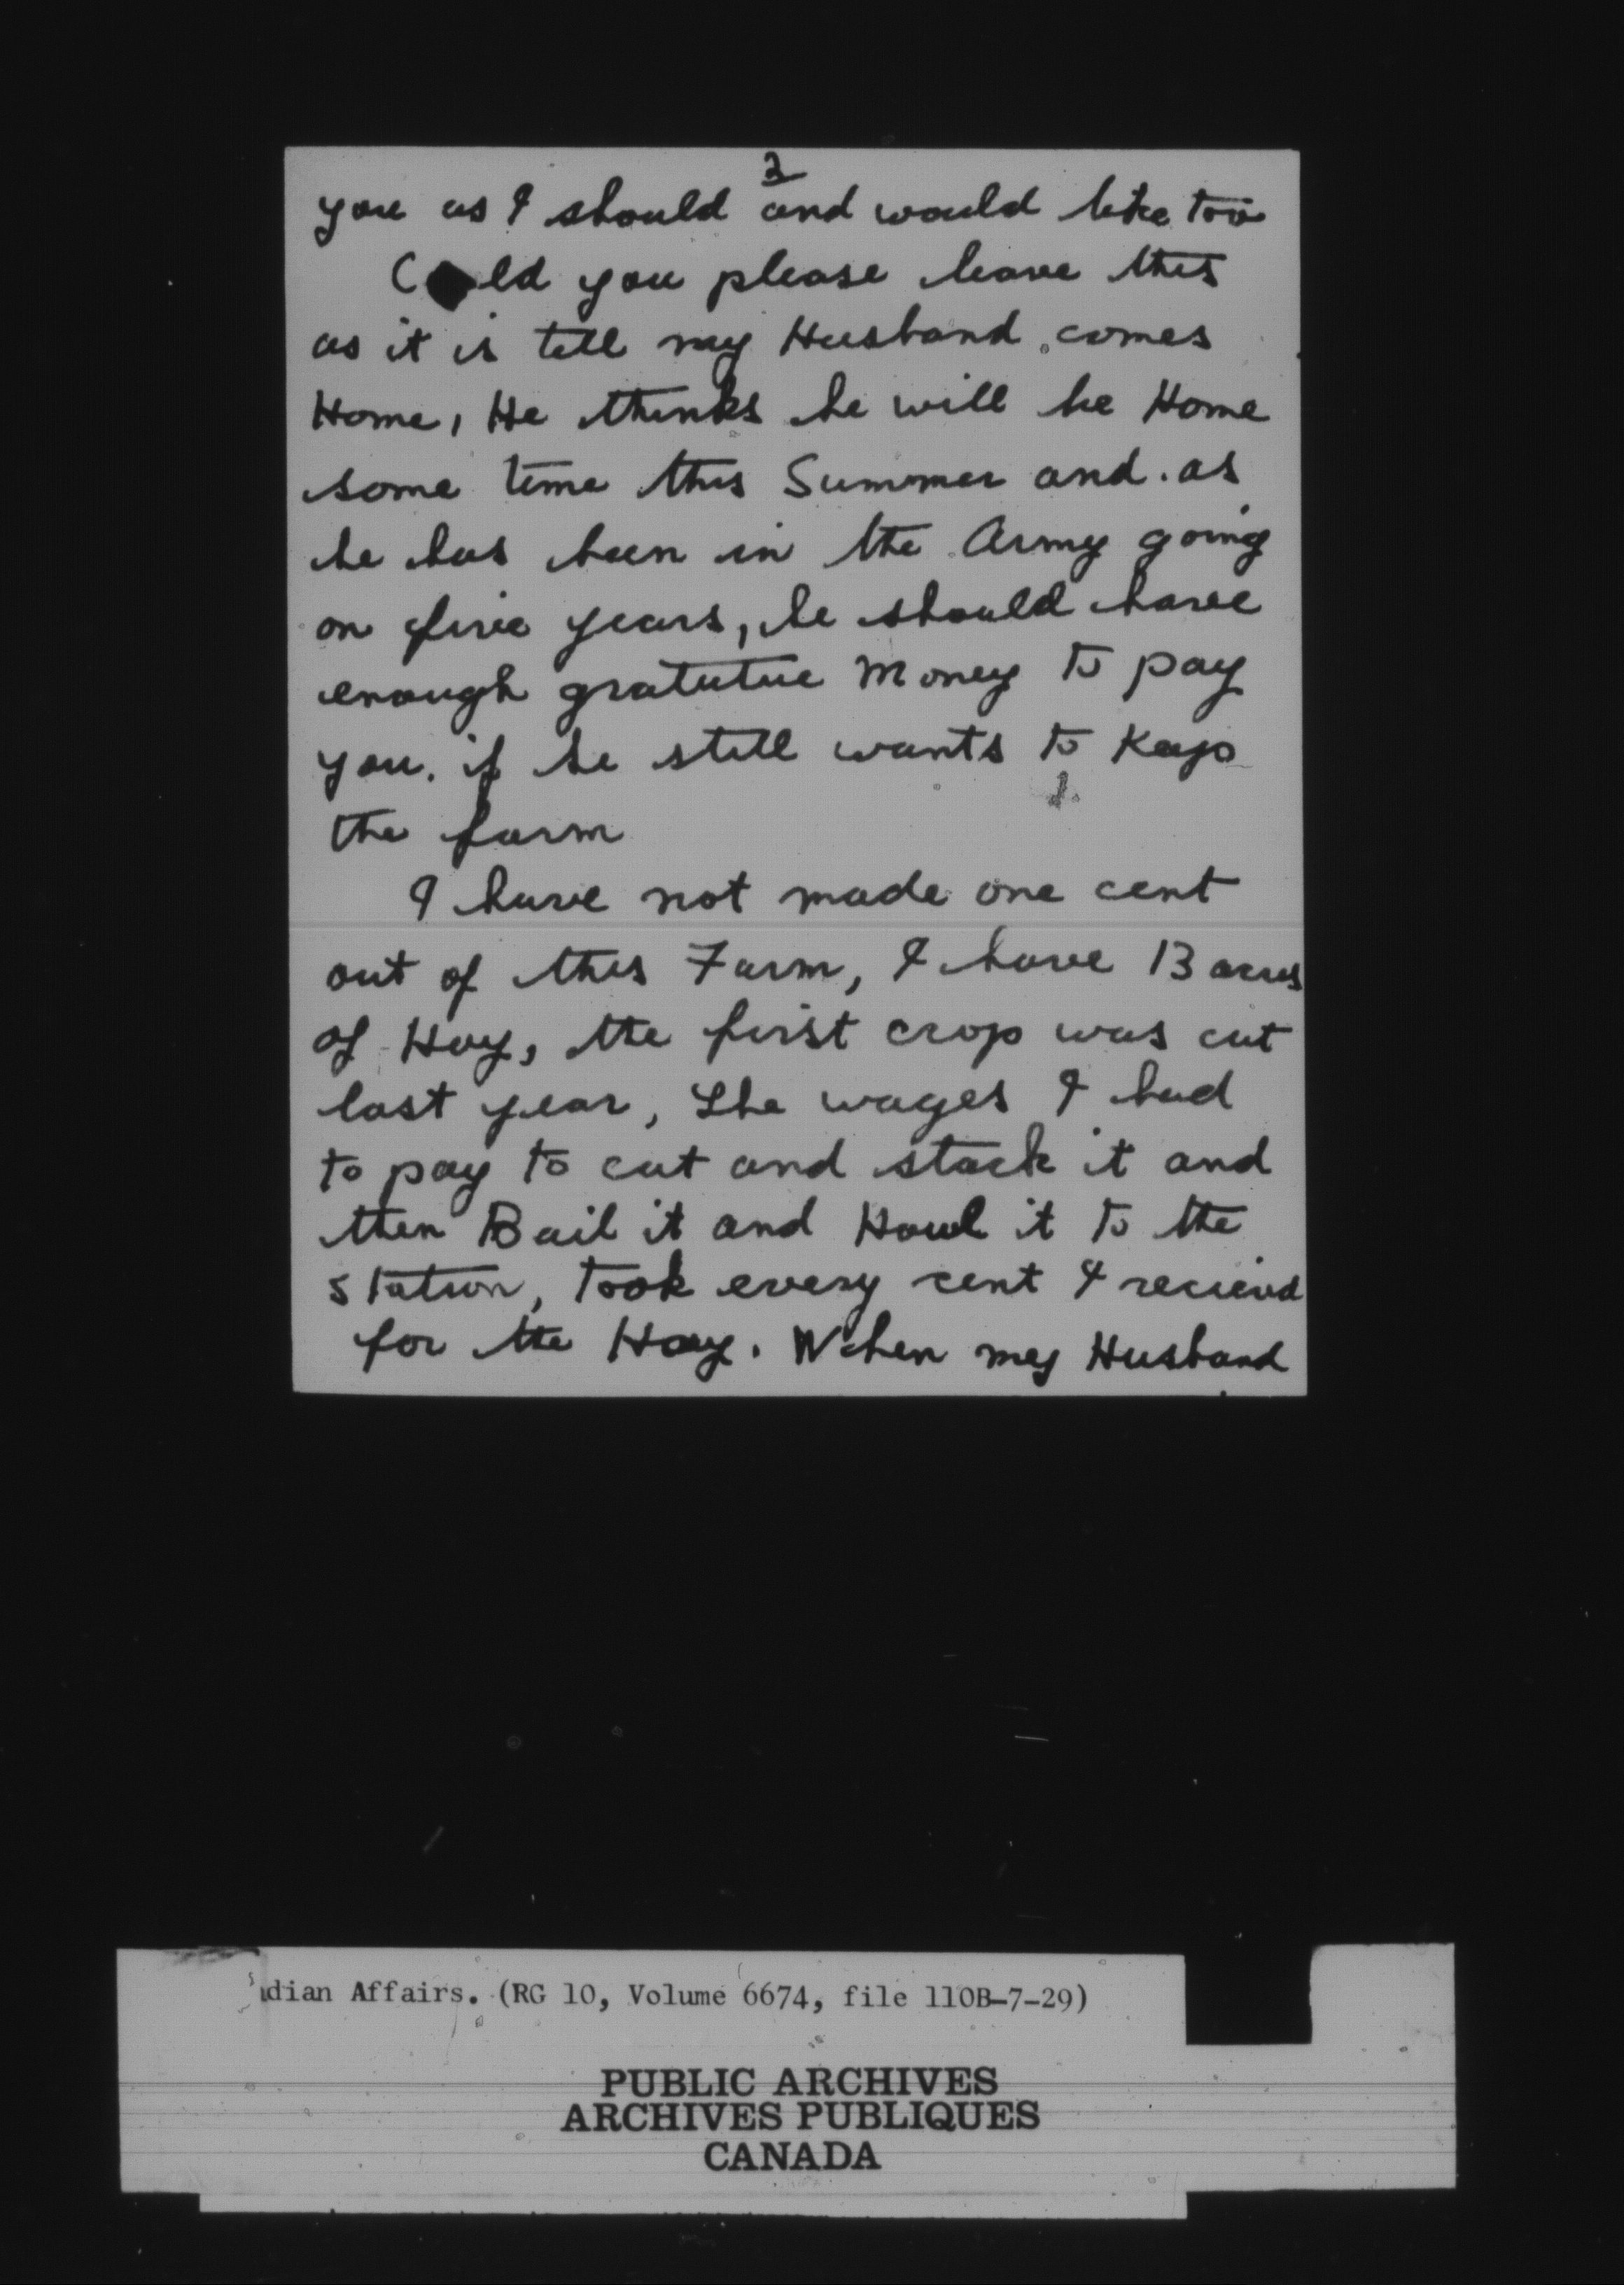 2
you as I should and would like too
C ld you please leave this
as it is till my Husband comes
Home, He thinks he will be Home
some time this Summer and as
he has been in the Army going
on five years, he should have
enough gratutue Money to pay
you, if he still wants to Keep
the farm
I have not made one cent
out of this Farm, I have 13 acres
of Hay, the first crop was cut
last year, The wages I had
to pay to cut and stack it and
then Bail it and Howl it to the
station, took every cent I recievd
for the Hay. When my Husband
dian Affairs. (RG 10, Volume 6674, file 110B-7-29)
PUBLIC ARCHIVES
ARCHIVES PUBLIQUES
CANADA